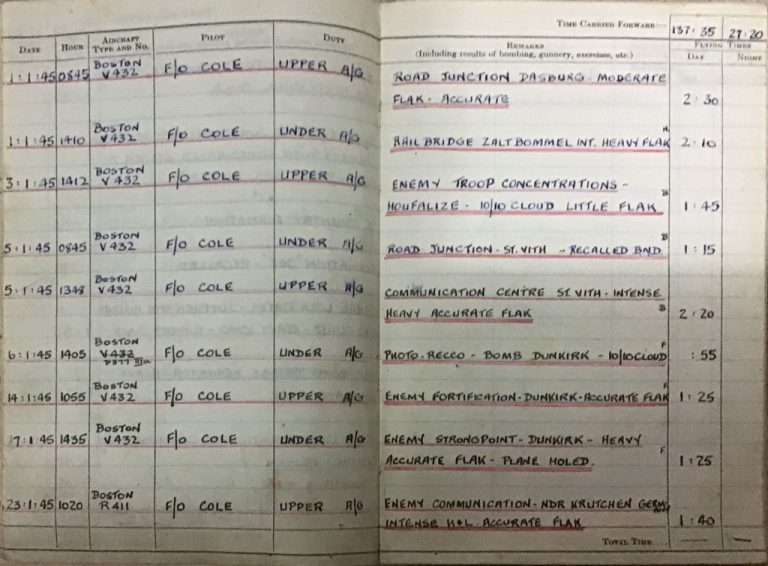 TIME CARRIED FORWARD— 137:35 27:20
DATE HOUR AIRCRAFT TYPE AND NO. PILOT DUTY REMARKS (Including results of bombing, gunnery, exercises, etc.) FLYING TIMES DAY NIGHT
1:1:45 0845 BOSTON V432 F/O COLE UPPER A/G ROAD JUNCTION DASBURG. MODERATE
FLAK. ACCURATE 2:30
1:1:45 1410 BOSTON V432 F/O COLE UNDER A/G RAIL BRIDGE ZALT BOMMEL INT. HEAVY FLAK H. 2:10
3:1:45 1412 BOSTON V432 F/O COLE UPPER A/G ENEMY TROOP CONCENTRATIONS -
HOUFALIZE - 10/10 CLOUD LITTLE FLAK B 1:45
5:1:45 0845 BOSTON V432 F/O COLE UNDER A/G ROAD JUNCTION - ST. VITH - RECALLED B 1:15
5:1:45 1348 BOSTON V432 F/O COLE UPPER A/G COMMUNICATION CENTRE ST. VITH - INTENSE
HEAVY ACCURATE FLAK B 2:20
6:1:45 1405 BOSTON V432 F/O COLE UNDER A/G PHOTO-RECCO - BOMB DUNKIRK - 10/10 CLOUD F :55
14:1:45 1055 BOSTON V432 F/O COLE UPPER A/G ENEMY FORTIFICATION - DUNKIRK - ACCURATE FLAK F 1:25
17:1:45 1435 BOSTON V432 F/O COLE UNDER A/G ENEMY STRONGPOINT - DUNKIRK - HEAVY
ACCURATE FLAK - PLANE HOLED. F 1:25
23:1:45 1020 BOSTON R411 F/O COLE UPPER A/G ENEMY COMMUNICATION - NDR KRUTCHEN
INTENSE H&L ACCURATE FLAK 1:40
TOTAL TIME.... — —